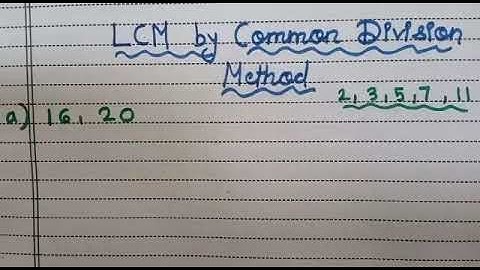 LCM by Common Division
Method
2, 3, 5, 7, 11
a) 16, 20